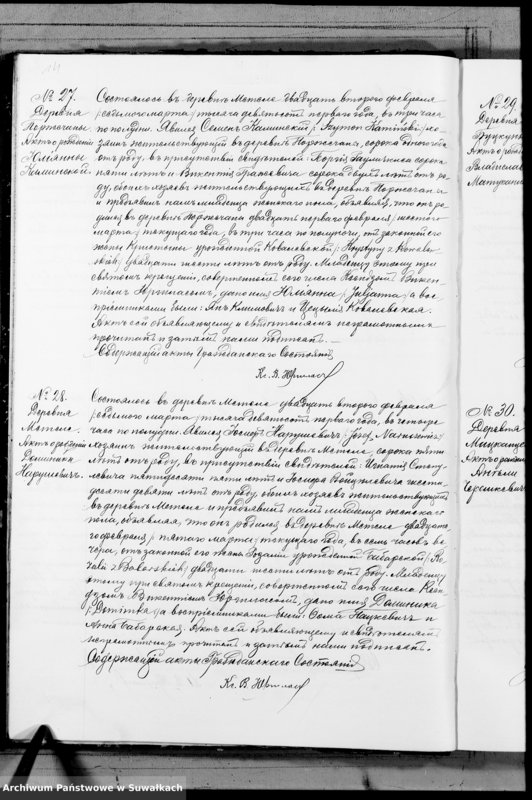 № 27.
Деревня
Актъ о рожденіи
Юліянны
Калинской.
Состоялось въ деревнѣ Метеле двадцать второго февраля
/седьмого марта/ тысяча девятьсотъ перваго года, въ три часа
по полудни. Явился Семенъ Калинскій / Szymon Kaliński / хо-
зяинъ жительствующій въ деревнѣ сорока одного года
отъ роду, въ присутствіи свидѣтелей: сорока
пяти лѣтъ и Викентія сорока двухъ лѣтъ отъ ро-
ду, обоихъ хозяевъ жительствующихъ въ деревнѣ
и предъявилъ намъ младенца женскаго пола, объявляя, что онъ ро-
дился въ деревнѣ двадцать перваго февраля /шестого
марта/ текущаго года, въ три часа по полуночи, отъ законной его
жены Кристины урожденной Ковалевской / Krystyny z Kowalew-
skich / двадцати шести лѣтъ отъ роду. Младенцу этому при
святомъ крещеніи, совершенномъ сего числа Ксендзомъ Викен-
тіемъ дано имя Юліянна / Julijanna / а вос-
пріемниками были: Янъ Климовичъ и Цецилія Ковалевская.
Актъ сей объявляющему и свидѣтелямъ неграмотнымъ
прочитанъ и затѣмъ нами подписанъ.
Содержащій акты Гражданскаго Состоянія
Кс. В.
№ 28.
Деревня
Метеле.
Актъ о рожденіи
Доминика
Нарушевичъ.
Состоялось въ деревнѣ Метеле двадцать второго февраля
/седьмого марта/ тысяча девятьсотъ перваго года, въ четыре
часа по полудни. Явился Іосифъ Нарушевичъ / Józef Naruszewicz /
хозяинъ жительствующій въ деревнѣ Метеле, сорока пяти
лѣтъ отъ роду, въ присутствіи свидѣтелей: Игнатія
пятидесяти пяти лѣтъ и Іосифа шести-
десяти девяти лѣтъ отъ роду, обоихъ хозяевъ жительствующихъ
въ деревнѣ Метеле и предъявилъ намъ младенца женскаго
пола, объявляя, что онъ родился въ деревнѣ Метеле двадцата-
го февраля /пятаго марта/ текущаго года, въ семь часовъ ве-
чера, отъ законной его жены Розаліи урожденной Бабарской / Ro-
zalii z Babarskich / двадцати лѣтъ отъ роду. Младенцу
этому при святомъ крещеніи, совершенномъ сего числа Ксен-
дзомъ Викентіемъ дано имя Доминика
/ Dominika / а воспріемниками были: и
Анна Бабарская. Актъ сей объявляющему и свидѣтелямъ
неграмотнымъ прочитанъ и затѣмъ нами подписанъ.
Содержащій акты Гражданскаго Состоянія
Кс. В.
№ 29.
Деревня
Актъ о рожденіи
№ 30.
Деревня
Актъ о рожденіи
Archiwum Państwowe w Suwałkach